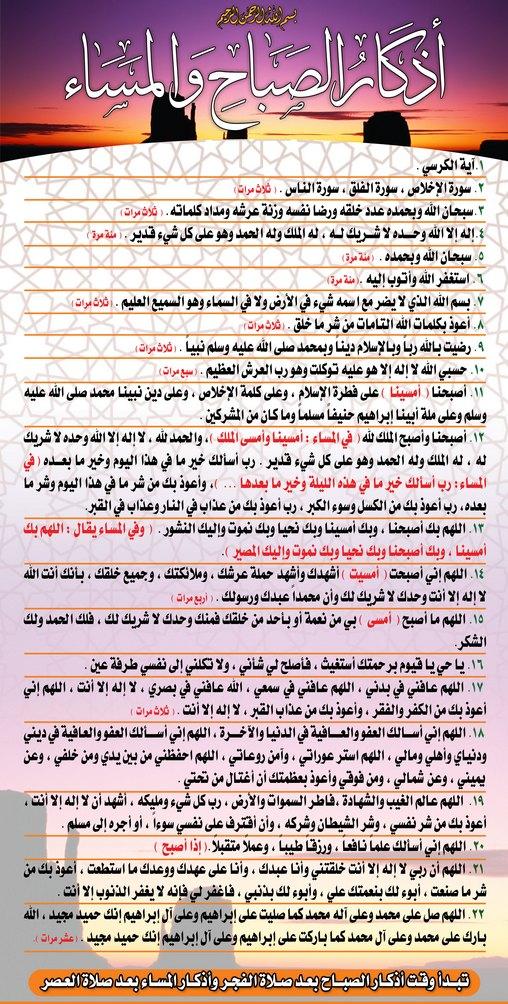 بسم الله الرحمن الرحيم
أذكار الصباح والمساء
١. آية الكرسي .
٢. سورة الإخلاص ، سورة الفلق ، سورة الناس . ( ثلاث مرات )
٣. سبحان الله وبحمده عدد خلقه ورضا نفسه وزنة عرشه ومداد كلماته . ( ثلاث مرات )
٤. لا إله إلا الله وحــده لا شــريك لـه ، له الملك وله الحمد وهو على كل شيء قدير . ( مئة مرة )
٥. سبحان الله وبحمده . ( مئة مرة )
٦. استغفر الله وأتوب إليه . ( مئة مرة )
٧. بسم الله الذي لا يضر مع اسمه شيء في الأرض ولا في السماء وهو السميع العليم . ( ثلاث مرات )
٨. أعوذ بكلمات الله التامات من شر ما خلق . ( ثلاث مرات )
٩. رضيت بالله ربا وبالإسلام دينا وبمحمد صلى الله عليه وسلم نبياً . ( ثلاث مرات )
١٠. حسبي الله لا إله إلا هو عليه توكلت وهو رب العرش العظيم . ( سبع مرات )
١١. أصبحنا ( أمسينا ) على فطرة الإسلام ، وعلى كلمة الإخلاص ، وعلى دين نبينا محمد صلى الله عليه
وسلم وعلى ملة أبينا إبراهيم حنيفاً مسلماً وما كان من المشركين .
١٢. أصبحنا وأصبح الملك لله ( في المساء : أمسينا وأمسى الملك )، والحمد لله ، لا إله إلا الله وحده لا شريك
له ، له الملك وله الحمد وهو على كل شيء قدير . رب أسألك خير ما في هذا اليوم وخير ما بعـده ( في
المساء: رب أسألك خير ما في هذه الليلة وخير ما بعدها ... )، وأعوذ بك من شر ما في هذا اليوم وشر ما
بعده، رب أعوذ بك من الكسل وسوء الكبر ، رب أعوذ بك من عذاب في النار وعذاب في القبر.
١٣. اللهم بك أصبحنا ، وبك أمسينا وبك نحيا وبك نموت وإليك النشور . ( وفي المساء يقال : اللهم بك
أمسينا ، وبك أصبحنا وبك نحيا وبك نموت وإليك المصير ).
١٤. اللهم إني أصبحت ( أمسيت ) أشهدك وأشهد حملة عرشك ، وملائكتك ، وجميع خلقك ، بأنك أنت الله
لا إله إلا أنت وحدك لا شريك لك وأن محمداً عبدك ورسولك . ( أربع مرات )
١٥. اللهم ما أصبح ( أمسى ) بي من نعمة أو بأحد من خلقك فمنك وحدك لا شريك لك ، فلك الحمد ولك
الشكر.
١٦. يا حي يا قيوم برحمتك أستغيث ، فأصلح لي شأني ، ولا تكلني إلى نفسي طرفة عين .
١٧. اللهم عافني في بدني ، اللهم عافني في سمعي ، الله عافني في بصري ، لا إله إلا أنت ، اللهم إني
أعوذ بك من الكفر والفقر ، وأعوذ بك من عذاب القبر ، لا إله إلا أنت . ( ثلاث مرات )
١٨. اللهم إني أسـالك العفو والعـافية في الدنيا والآخـرة ، اللهم إني أسـألك العفو والعافية في ديني
ودنياي وأهلي ومالي ، اللهم استر عوراتي ، وآمن روعاتي ، اللهم احفظني من بين يدي ومن خلفي ، وعن
يميني ، وعن شمالي ، ومن فوقي وأعوذ بعظمتك أن أغتال من تحتي .
١٩. اللهم عالم الغيب والشهادة ، فاطر السموات والأرض ، رب كل شيء ومليكه ، أشهد أن لا إله إلا أنت ،
أعوذ بك من شر نفسي ، وشر الشيطان وشركه ، وأن أقترف على نفسي سوءاً ، أو أجره إلى مسلم .
٢٠. اللهم إني أسألك علما نافعا ، ورزقا طيبا ، وعملا متقبلا. ( إذا أصبح )
٢١. اللهم أن ربي لا إله إلا أنت خلقتني وأنا عبدك ، وأنا على عهدك ووعدك ما استطعت ، أعوذ بك من
شر ما صنعت ، أبوء لك بنعمتك علي ، وأبوء لك بذنبي ، فاغفر لي فإنه لا يغفر الذنوب إلا أنت .
٢٢. اللهم صل على محمد وعلى آله محمد كما صليت على إبراهيم وعلى آل إبراهيم إنك حميد مجيد ، الله
بارك على محمد وعلى آل محمد كما باركت على إبراهيم وعلى آل إبراهيم إنك حميد مجيد . ( عشر مرات ).
تبـدأ وقت أذكار الصبـاح بعد صلاة الفجر وأذكار المساء بعد صلاة العصر